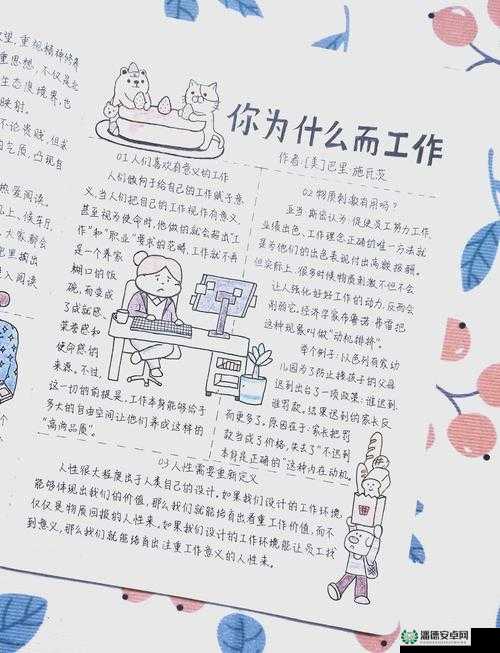 望,重视精神修养
重思想,不仅是北
生态度境界,也
映射。
不论贵贱,但求
的气质,凸现自
热爱阅读。
机上,候车厅
大家都会
里掏出
进入阅读
你为什么而工作
作者:[美]巴里·施瓦茨
01 人们喜欢有意义的工作
人们倾向于给自己的工作赋予意
义,当人们把自己的工作视作有意义,
甚至视为使命时,他做的就会超出"工
作"和"职业"要求的范畴,工作就不再
是一个养家
糊口的饭
碗,而变成
了成就感、
荣誉感和
使命感的
来源。不过,
这一切的前提是,工作本身能够给予
多大的自由空间让他们养成这样的
"高尚品质"。
02 物质刺激有用吗?
亚当·斯密认为:促使员工努力工作,
业绩出色,工作理念正确的唯一方法就
是为他们的出色表现付出高额报酬。
但实际上,很多时候物质刺激不但不会
让人强化好好工作的动力,反而会
削弱它,经济学家布鲁诺·弗雷把
这种现象叫做"动机排挤"。
举个例子:以色列有家幼
儿园为了防止接孩子的父母
迟到出台了一项政策:谁迟到,
谁罚款。结果迟到的家长反
而更多了。原因在于:家长把罚
款当成了价格,失去了"不迟到
本身是正确的"这种内在动机。
03 人性需要重新定义
人性很大程度出于人类自己的设计。如果我们设计的工作环境,
能够体现出我们的价值,那么我们就能培育出看重工作价值,而不
仅仅是物质回报的人性来。如果我们设计的工作环境能让员工找
到意义,那么我们就能培育出注重工作意义的人性来。
潘德安卓网